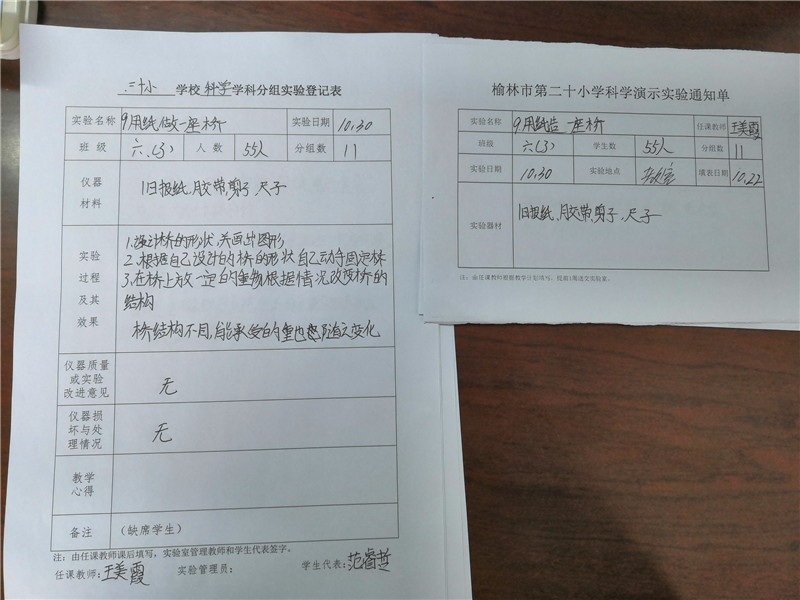 二十小 学校 科学 学科分组实验登记表
实验名称 9用纸做一座桥 实验日期 10.30
班 级 六(3) 人 数 55人 分组数 11
仪器
材料
旧报纸、胶带、剪子 尺子
实验
过程
及其
效果
1.设计桥的形状,并画出图形
2.根据自己设计的桥的形状自己动手固定桥
3.在桥上放一定的重物根据情况改变桥的
结构
桥结构不同,能承受的重也随之变化
仪器质量
或实验
改进意见
无
仪器损
坏与处
理情况
无
教学
心得
备注 (缺席学生)
注:由任课教师课后填写,实验室管理教师和学生代表签字。
任课教师:王美霞 实验管理员: 学生代表:范睿哲
榆林市第二十小学科学演示实验通知单
实验名称 9用纸造一座桥 任课教师 王美霞
班级 六(3) 学生数 55人 分组数 11
实验日期 10.30 实验地点 实验室 填表日期 10.22
实验器材
旧报纸、胶带、剪子、尺子
注:由任课教师根据教学计划填写,提前1周送交实验室。